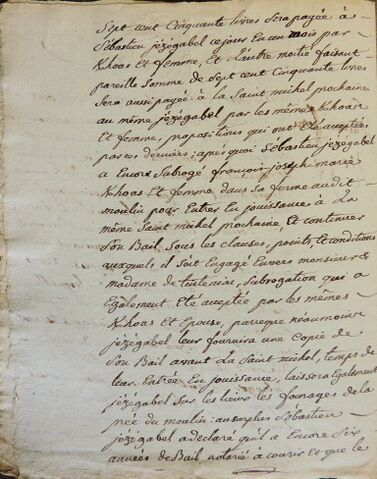 Sept cent Cinquante livres Sera payée à
Sébastien jézégabel ce jour En un mois par
Khoas Et femme, Et L'autre moitié faisant
pareille Somme de Sept cent Cinquante livres
Sera aussi payée à la Saint michel prochaine
au même jézégabel par les mêmes Khoas
Et femme, propositions qui ont Eté acceptées
par ces derniers; après quoi Sébastien jézégabel
a Encore Subrogé francois-joseph-marie
Khoas Et femme dans Sa ferme audit
moulin pour Entrer En jouissance à La
même Saint michel prochaine, Et continuer
Son Bail Sous les clauses, points, Et conditions
auxquels il S'est Engagé Envers monsieur &
madame de, Subrogation qui a
Egalement Eté acceptée par les mêmes
Khoas Et Epouse, parceque néanmoins
jézégabel leur fournira une Copie de
Son Bail avant La Saint michel, temps de
leur Entrée En jouissance, laissera Egalement
jézégabel Sur les lieux les fourages de la
prée du moulin: au surplus Sébastien
jézégabel a déclaré qu'il a Encore Six
années de Bail notarié à courir et que le